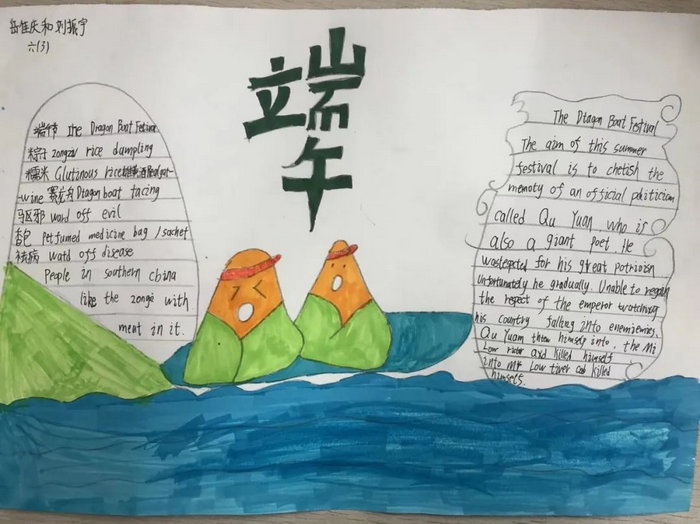 岳佳庆和刘振宇
六(3)
端午
端午节 the Dragon Boat Festival
粽子 zongzi/ rice dumpling
糯米 Glutinous rice
wine 赛龙舟 Dragon boat racing
驱邪 ward off evil
香包 perfumed medicine bag /sachet
祛病 ward off disease
people in southern china
like the zongzi with
meat in it.
The Dragon Boat Festival
The aim of this summer
festival is to cherish the
memory of an official
called Qu Yuan who is
also a giant poet He
was for his great
Unfortunately he gradually Unable to regain
the respect of the emperor watching
his country falling into enemiemies,
Qu Yuan threw himself into, the Mi
Low river and killed himself
into Mi Low river and killed
himself.